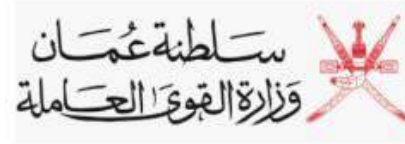 سلطنة عُمان
وزارة القوى العاملة